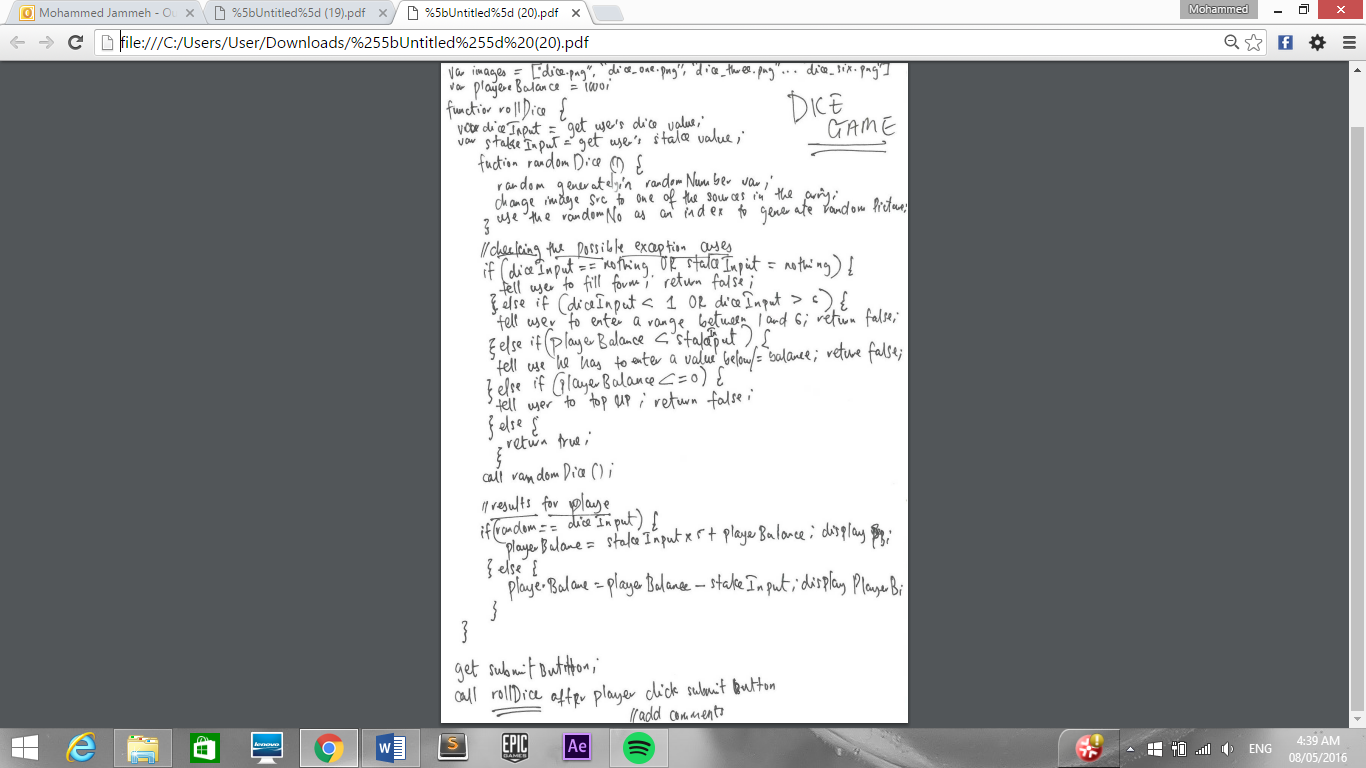 Mohammed Jammeh - Ou
%5bUntitled%5d (19).pdf
%5bUntitled%5d (20).pdf
Mohammed
file:///C:/Users/User/Downloads/%255bUntitled%255d%20(20).pdf
var images = ["dice.png", "dice_one.png", "dice_three.png"... dice_six.png"]
var playerBalance = 1000;
DICE
GAME
function rollDice {
var diceInput = get user's dice value;
var stakeInput = get user's stake value;
fuction randomDice () {
random generate in randomNumber var;
change image src to one of the sources in the array;
use the randomNo as an index to generate random Picture;
}
//checking the possible exception cases
if (diceInput == nothing OR stakeInput = nothing) {
tell user to fill form; return false;
} else if (diceInput < 1 OR diceInput > 6) {
tell user to enter a range between 1 and 6; return false;
} else if (playerBalance < stakeInput) {
tell use he has to enter a value below/= balance; return false;
} else if (playerBalance <= 0) {
tell user to top up; return false;
} else {
return true;
}
call randomDice();
//results for playe
if (random == diceInput) {
playerBalane = stakeInput x 5 + playerBalance; display PB;
} else {
playerBalane = playerBalance - stakeInput; display PlayerB;
}
}
get submit Button;
call rollDice after player click submit button
//add comments
lenovo
W
S
EPIC
GAMES
Ae
ENG
4:39 AM
08/05/2016